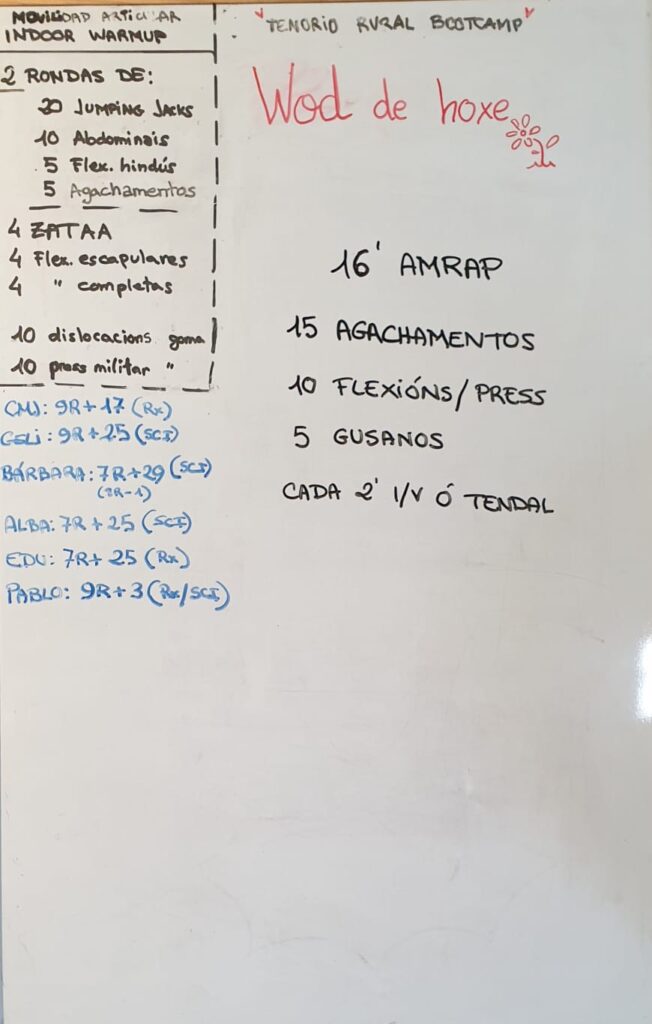 MOVILIDAD ARTICULAR
INDOOR WARMUP
2 RONDAS DE:
20 JUMPING JACKS
10 Abdominais
5 Flex. hindús
5 Agachamentos
4 ZATAA
4 Flex. escapulares
4 " completas
10 dislocacions goma
10 press militar "
CMJ: 9R+17 (Rx)
GELI: 9R+25 (SCI)
BÁRBARA: 7R+29 (SCI)
(2R-1)
ALBA: 7R+25 (SCI)
EDU: 7R+25 (Rx)
PABLO: 9R+3 (Rx/SCI)
"TENORIO RURAL BOOTCAMP"
Wod de hoxe
16' AMRAP
15 AGACHAMENTOS
10 FLEXIÓNS/PRESS
5 GUSANOS
CADA 2' I/V Ó TENDAL